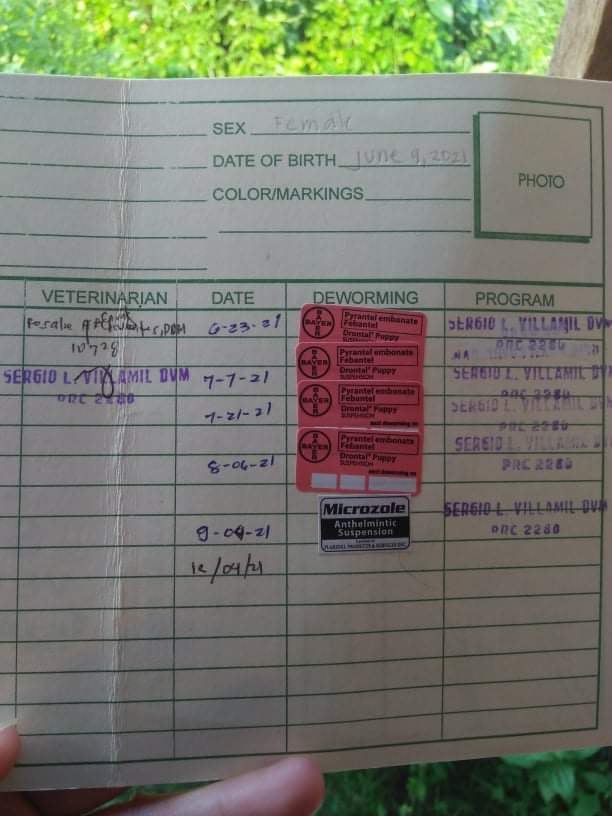 SEX Female
DATE OF BIRTH June 9, 2021
PHOTO
COLOR/MARKINGS
VETERINARIAN DATE DEWORMING PROGRAM
6-23-21
BAYER
Pyrantel embonate
Febantel
Drontal® Puppy
SERGIO L. VILLAMIL DVM
PRC 2280
10728
SERGIO L. VILLAMIL DVM
PRC 2280
7-7-21
BAYER
Pyrantel embonate
Febantel
Drontal® Puppy
SUSPENSION
SERGIO L. VILLAMIL DV
PRC 2280
7-21-21
BAYER
Pyrantel embonate
Febantel
Drontal® Puppy
SUSPENSION
next deworming on
SERGIO L. VILLAMIL DV
PRC 2280
8-04-21
BAYER
Pyrantel embonate
Febantel
Drontal® Puppy
SUSPENSION
next deworming on
SERGIO L. VILLAMIL
PRC 2280
9-04-21
Microzole
Anthelmintic
Suspension
SERGIO L. VILLAMIL DVM
PRC 2280
12/04/21